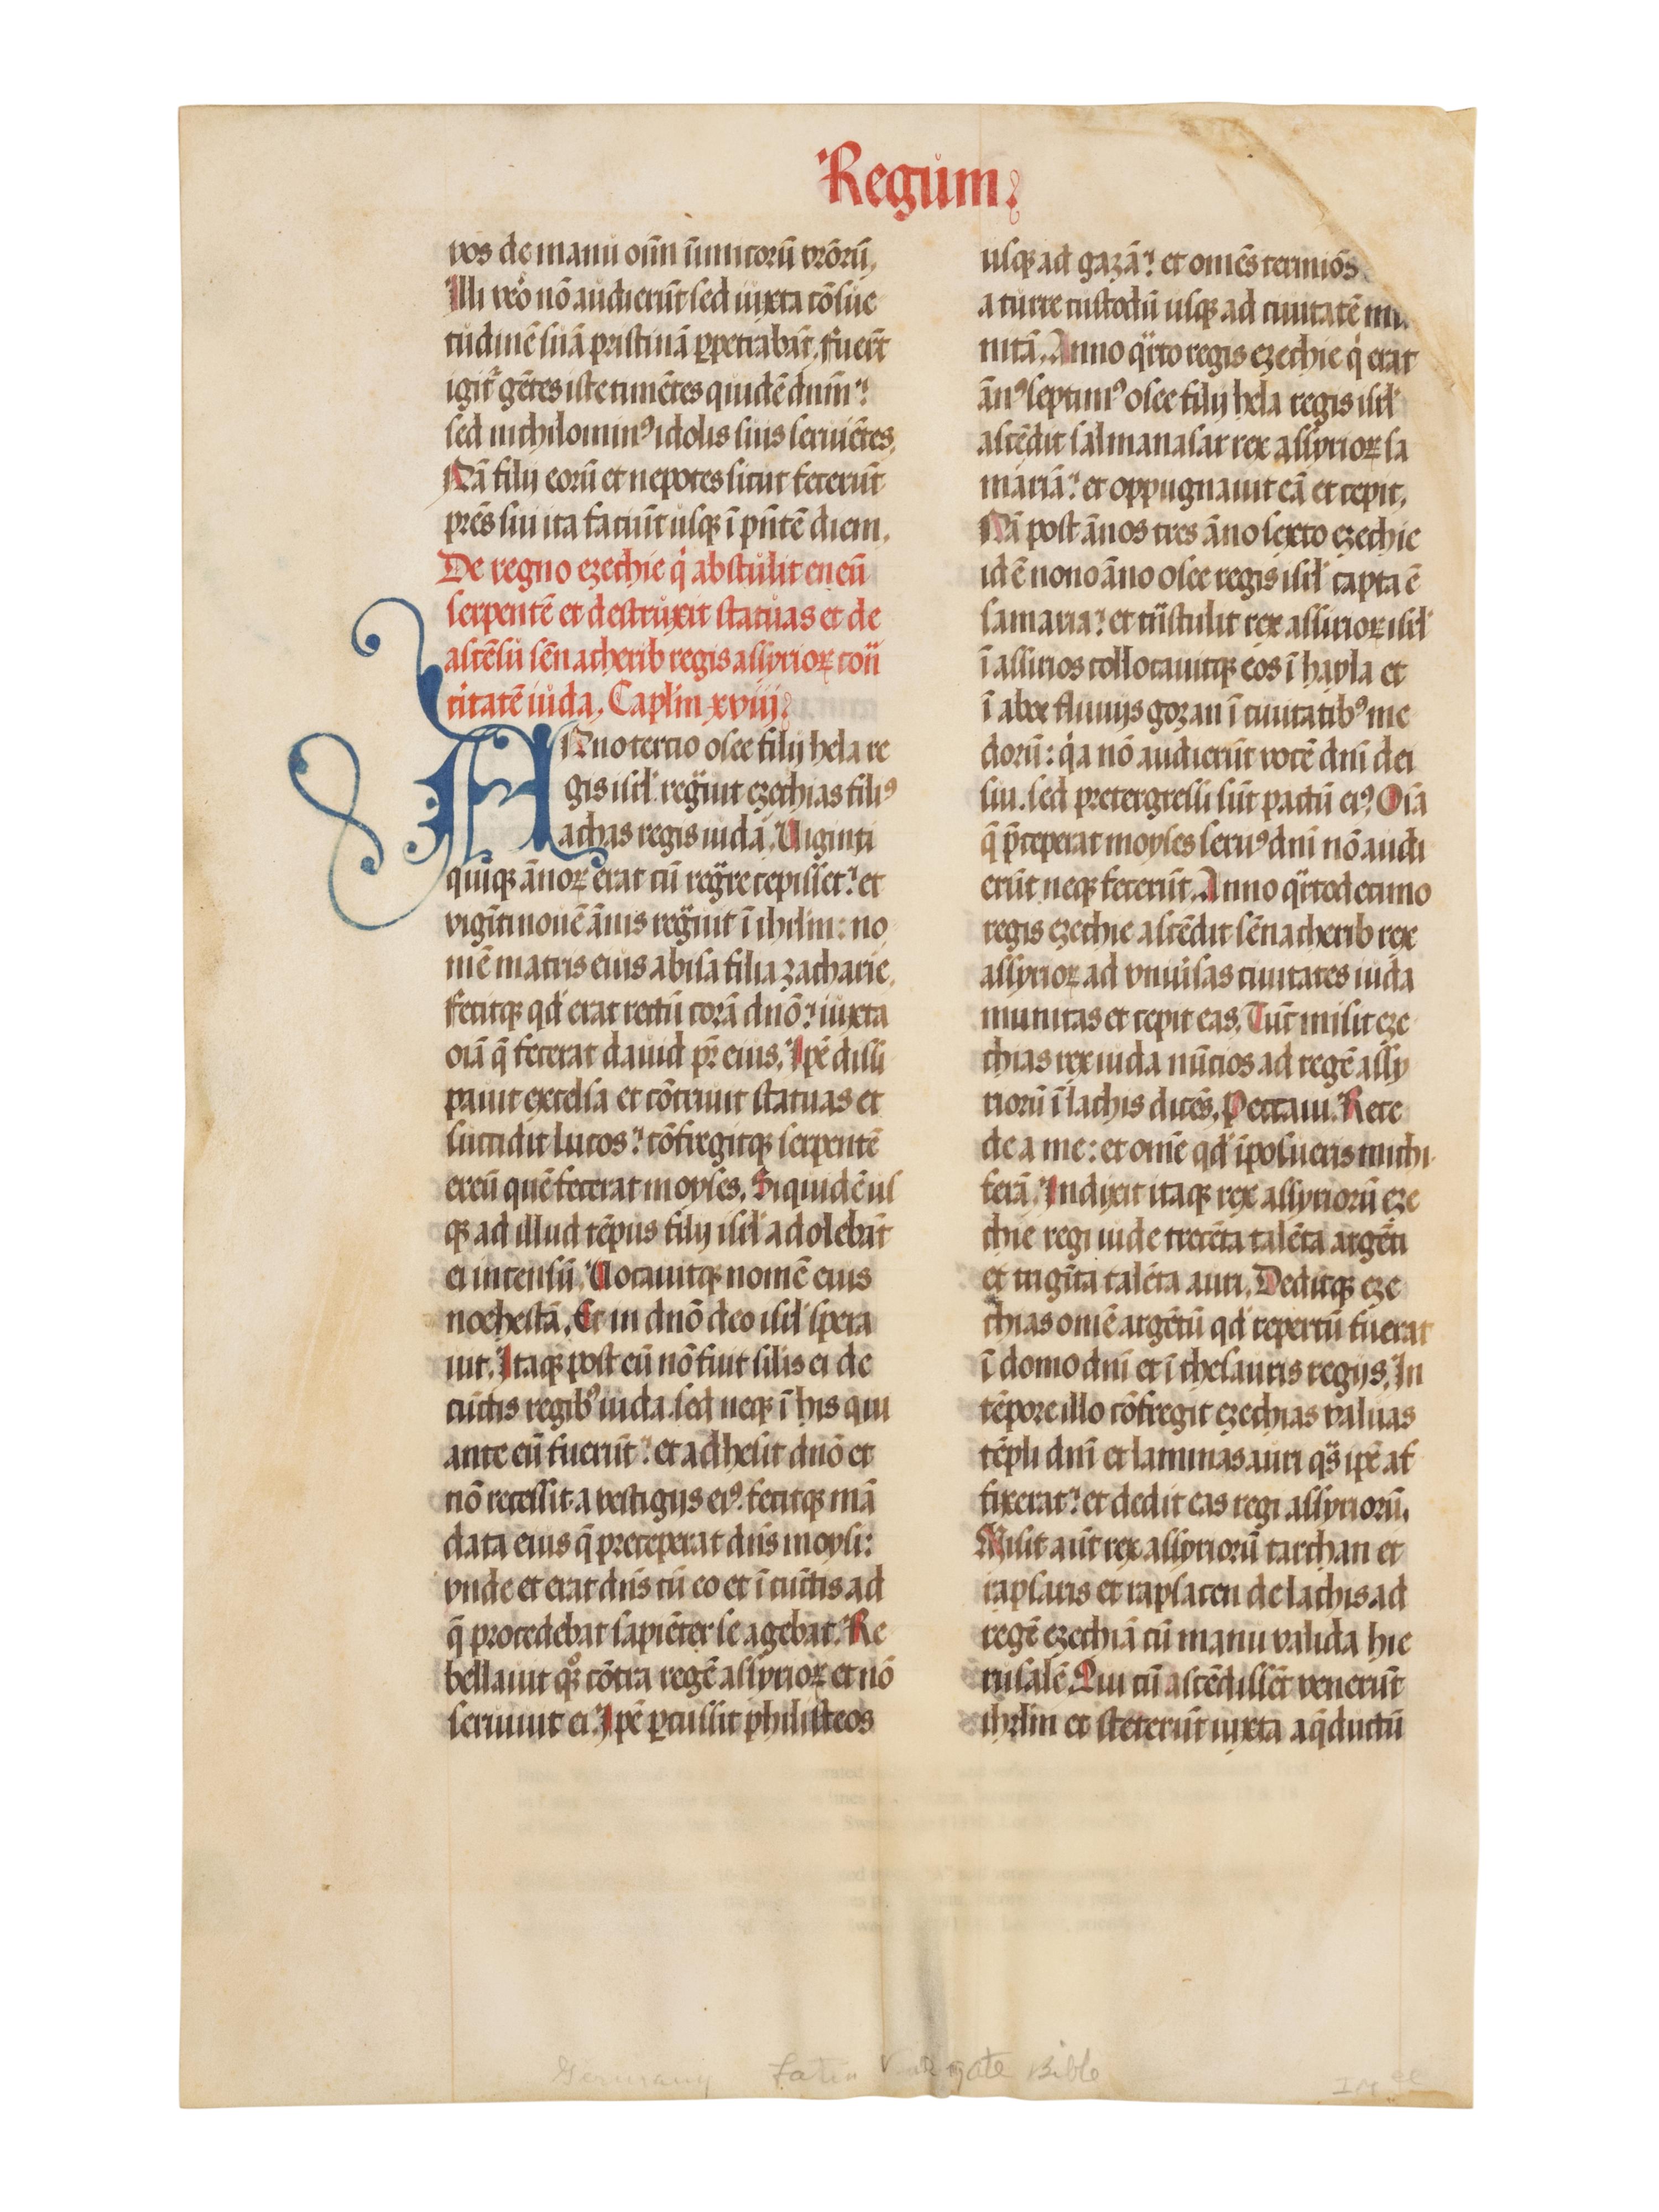 Regum.
vos de manu oīm īimicorū vr̄orū.
Illi vero nō audierūt sed iuxta cōsue
tudinē suā pristinā ꝑpetrabāt. fuerūt
igit᷑ gētes iste timētes quidē dnm̄:
sed nichilominꝰ idolis suis seruiētes.
Nā filij eorū et nepotes sicut fecerūt
pr̄es sui ita faciūt usqꝫ ī pn̄tē diem.
De regno ezechie qi abstulit eneū
serpentē et destruxit statuas et de
ascēsu sēnacherib regis assyrioꝝ cōn
citatē iuda. Caplm̄ xviij.
ANno tercio osee filij hela re
gis isrl̄ regͣuit ezechias filiꝰ
achas regis iuda. Uiginti
quiqꝫ ānoꝝ erat cū regͣre cepisset: et
vigīti nouē ānis regͣuit ī ihrlm̄: no
mē matris eius abisa filia zacharie.
fecitqꝫ qd̄ erat rectū corā dn̄o: iuxta
oīa q̄ fecerat dauid pr̄ eius. Ip̄e dissi
pauit excelsa et cōtriuit statuas et
succidit lucos: cōfregitqꝫ serpentē
ereū quē fecerat moyses. Siquidē us
qꝫ ad illud tēpus filij isrl̄ adolebāt
ei incensū. Uocauitqꝫ nomē eius
noehestā. Et in dn̄o deo isrl̄ spera
uit. Itaqꝫ post eū nō fuit silis ei de
cūctis regibꝰ iuda. sed neqꝫ ī his qui
ante eū fuerūt: et adhesit dn̄o et
nō recessit a vestigijs eiꝰ. fecitqꝫ mā
data eius q̄ preceperat dn̄s moysi:
vnde et erat dn̄s cū eo et ī cūctis ad
q̄ procedebat sapiēter se agebat. Re
bellauit qͦꝫ cōtra regē assyrioꝝ et nō
seruiuit ei. Ip̄e ꝑcussit philisteos
usqꝫ ad gazā: et omēs termiōs
a turre custodū usqꝫ ad ciuitatē mu
nitā. Anno qͣrto regis ezechie qi erat
ānꝰ septimꝰ osee filij hela regis isrl̄
ascēdit salmanasar rex assyrioꝝ sa
mariā: et oppugnauit eā et cepit.
Nā post ānos tres āno sexto ezechie
id ē nono āno osee regis isrl̄ capta ē
samaria: et trͣstulit rex assirioꝝ isrl̄
ī assirios collocauitqꝫ eos ī hayla et
ī abor fluuijs gozan ī ciuitatibꝰ me
dorū: qia nō audierūt vocē dn̄i dei
sui. sed pretergressi sūt pactū eiꝰ. Oīa
q̄ p̄ceperat moyses seruꝰ dn̄i nō audi
erūt neqꝫ fecerūt. Anno qͣrtodecimo
regis ezechie ascēdit sēnacherib rex
assyrioꝝ ad vniūsas ciuitates iuda
munitas et cepit eas. Tūc misit eze
chias rex iuda nūcios ad regē assy
riorū ī lachis dicēs. Peccaui. Rece
de a me: et omē qd̄ īposueris michi
ferā. Indixit itaqꝫ rex assyriorū eze
chie regi iude trecēta talēta argēti
et trigīta talēta auri. Deditqꝫ eze
chias omē argētū qd̄ repertū fuerat
ī domo dn̄i et ī thesauris regijs. In
tēpore illo cōfregit ezechias valuas
tēpli dn̄i et laminas auri qͣs ip̄e af
fixerat: et dedit eas regi assyriorū.
Misit aūt rex assyriorū tarthan et
rapsaris et rapsacen de lachis ad
regē ezechiā cū manu valida hie
rusalē. Qui cū ascēdissēt venerūt
ihrlm̄ et steterūt iuxta aq̄ductū
Germany Latin Vulgate Bible